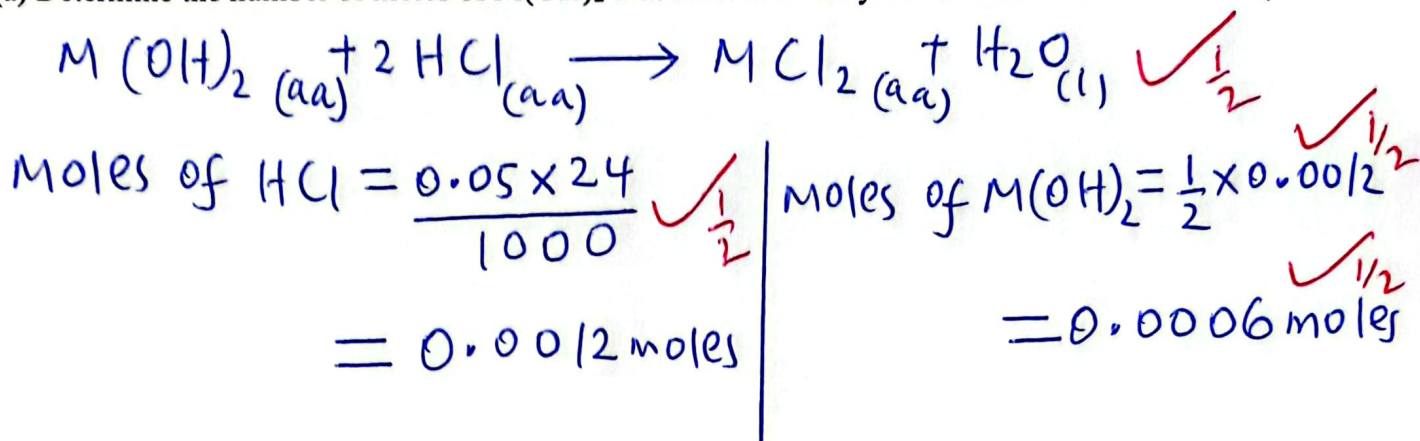 M(OH)₂(aq) + 2HCl(aq) → MCl₂(aq) + H₂O(l) ✓½
Moles of HCl = 0.05 × 24 / 1000 ✓½
= 0.0012 moles
Moles of M(OH)₂ = ½ × 0.0012 ✓1/2
= 0.0006 moles ✓1/2